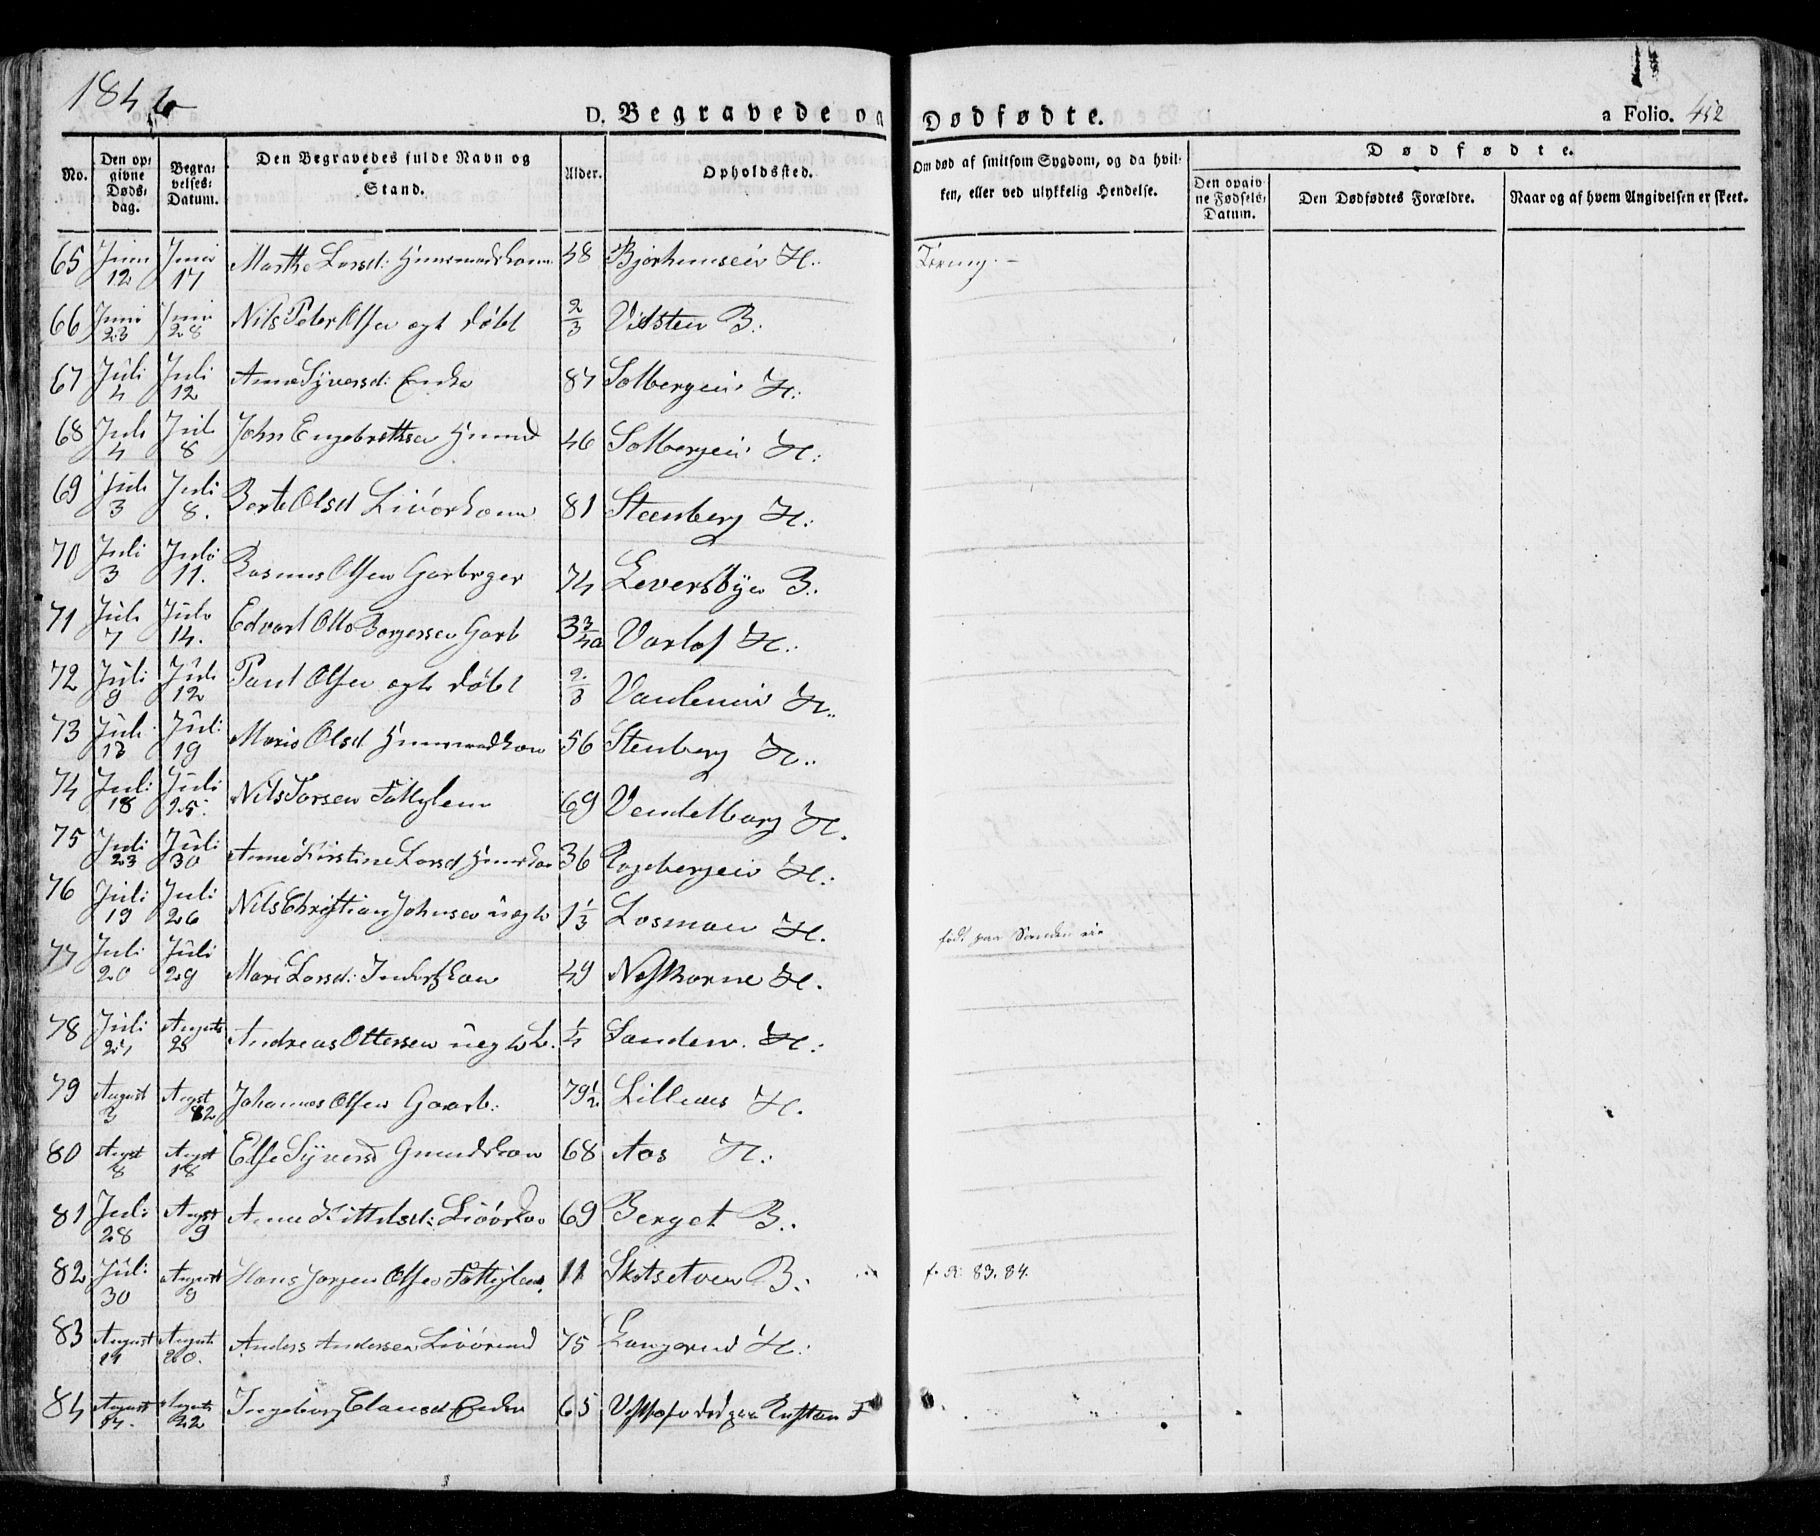 1846
D. Begravede og Dødfødte.
a Folio. 452
No. | Den opgivne Dødsdag. | Begravelses-Datum. | Den Begravedes fulde Navn og Stand. | Alder. | Opholdssted. | Om død af smitsom Sygdom, og da hvilken, eller ved ulykkelig Hendelse. | Dødfødte.
Den opgivne Fødsels-Datum. | Den Dødfødtes Forældre. | Naar og af hvem Angivelsen er skeet.
65 Juni 12 Juni 17 Marthe Larsd: Huusmandskone 48 Bjørkenseie H. Tæring.
66 Juni 23 Juni 28 Nils Peter Olsen ægte døbt 2/3 Vidsten B.
67 Juli 4 Juli 12 Anne Syversd: Enke 87 Solbergeie H.
68 Juli 4 Juli 8 John Engebretsen Huusmd 46 Solbergeie H.
69 Juli 3 Juli 8. Berte Olsd Livørkone 81 Steenberg H.
70 Juli 3 Juli 11. Rasmus Olsen Gaarbruger 74 Leversbye B.
71 Juli 7 Juli 14. Edvart Otto Borgersen Gaarb 3 3/4 a Varlof H.
72 Juli 9 Juli 12 Paul Olsen ægte døbt 2/3 H.
73 Juli 13 Juli 19 Marie Olsd Huusmandskone 56 Stenberg H.
74 Juli 18 Juli 25. Nils Torsen Fattiglem 69 Vendelborg H.
75 Juli 23 Juli 30 Anne Kirstine Larsd Huusko 36 H.
76 Juli 19 Juli 26 Nils Christian Johnsen uægte 1 1/3 Losmoen H. født paa Sanden
77 Juli 20 Juli 29 Mari Larsd: Inderstkone 49 Neskorne H.
78 Juli 24 August 28 Andreas Ottersen uægte 1/4 Sanden. H.
79 August 3 Augst 12 Johannes Olsen Gaarb. 79 1/2 Lilleaas H.
80 Augst 8 Augst 18 Else Syversd Huusmdskone 68 Aas H.
81 Juli 28 Augst 9 Anne Kittilsd: Livørko 69 Berget B.
82 Juli 30 August 9 Hans Jørgen Olsen Fattiglem. 11 Skitsetven B. f. R: 83. 84.
83 August 14 August 20. Anders Andersen Livørmd 75 Langerud H.
84 August 14. August 22 Ingeborg Clausd Enke 65 død paa